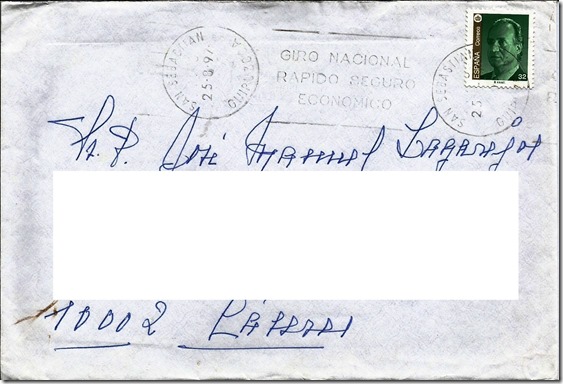 SAN SEBASTIAN
25.8.97
GUIPUZCOA
GIRO NACIONAL
RAPIDO SEGURO
ECONOMICO
ESPAÑA
Correos
32
SAN SEBASTIAN
25
GUIPUZ
José Manuel
10002 Cáceres